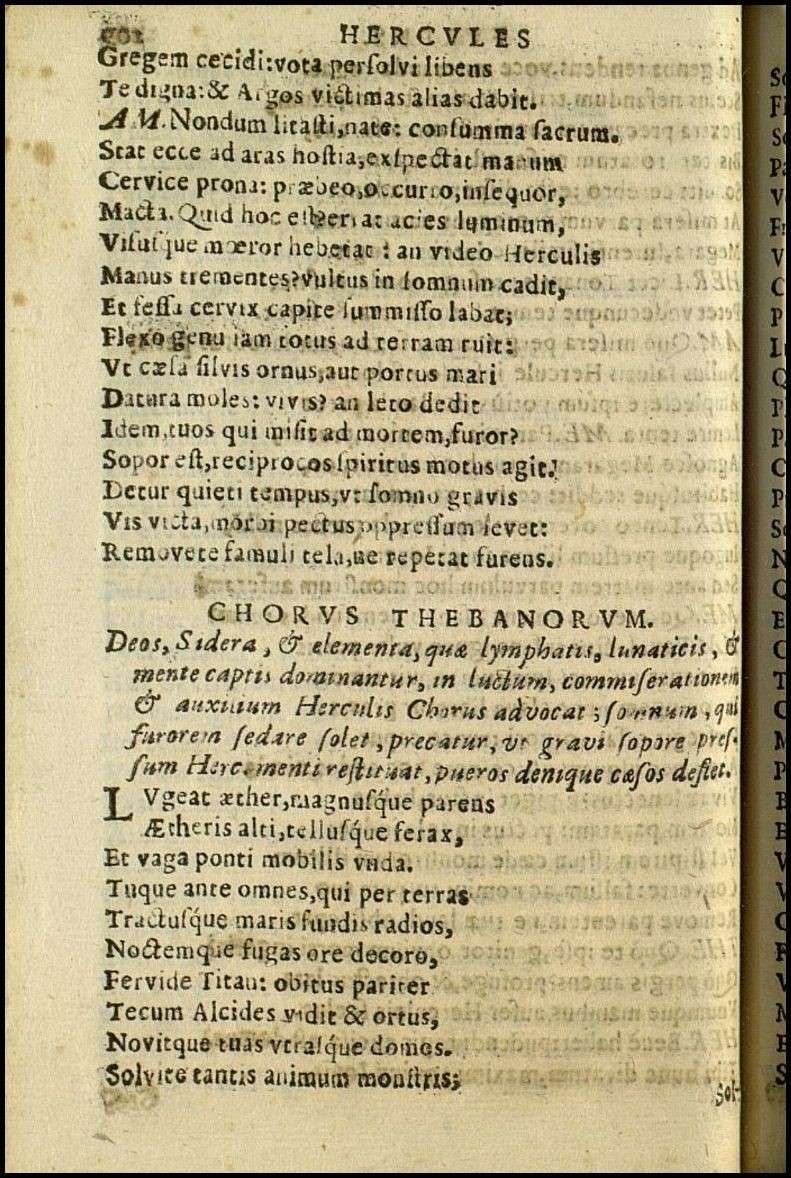 HERCVLES
Gregem cecidi: vota persolvi libens
Te digna: & Argos victimas alias dabit.
AM. Nondum litasti, nate: consumma sacrum.
Stat ecce ad aras hostia, exspectat manum
Cervice prona: præbeo, occurro, insequor,
Macta. Quid hoc est? errat acies luminum,
Visusque mœror hebetat? an video Herculis
Manus trementes? vultus in somnum cadit,
Et fessa cervix capite summisso labat;
Flexo genu iam totus ad terram ruit:
Vt cæsa silvis ornus, aut portus mari
Datura moles: vivis? an leto dedit
Idem, tuos qui misit ad mortem, furor?
Sopor est, reciprocos spiritus motus agit.
Detur quieti tempus, vt somno gravis
Vis victa, morbi pectus oppressum levet:
Removete famuli tela, ne repetat furens.
CHORVS THEBANORVM.
Deos, Sidera, & elementa, quæ lymphatis, lunaticis, &
mente captis dominantur, in luctum, commiserationem
& auxilium Herculis Chorus advocat; somnum, qui
furorem sedare solet, precatur, vt gravi sopore pres-
sum Herc. menti restituat, pueros denique cæsos deflet.
LVgeat æther, magnusq́ue parens
Ætheris alti, tellusq́ue ferax,
Et vaga ponti mobilis vnda.
Tuque ante omnes, qui per terras
Tractusq́ue maris fundis radios,
Noctemque fugas ore decoro,
Fervide Titan: obitus pariter
Tecum Alcides vidit & ortus,
Novitque tuas vtrasq́ue domos.
Solvite tantis animum monstris;
Sol-